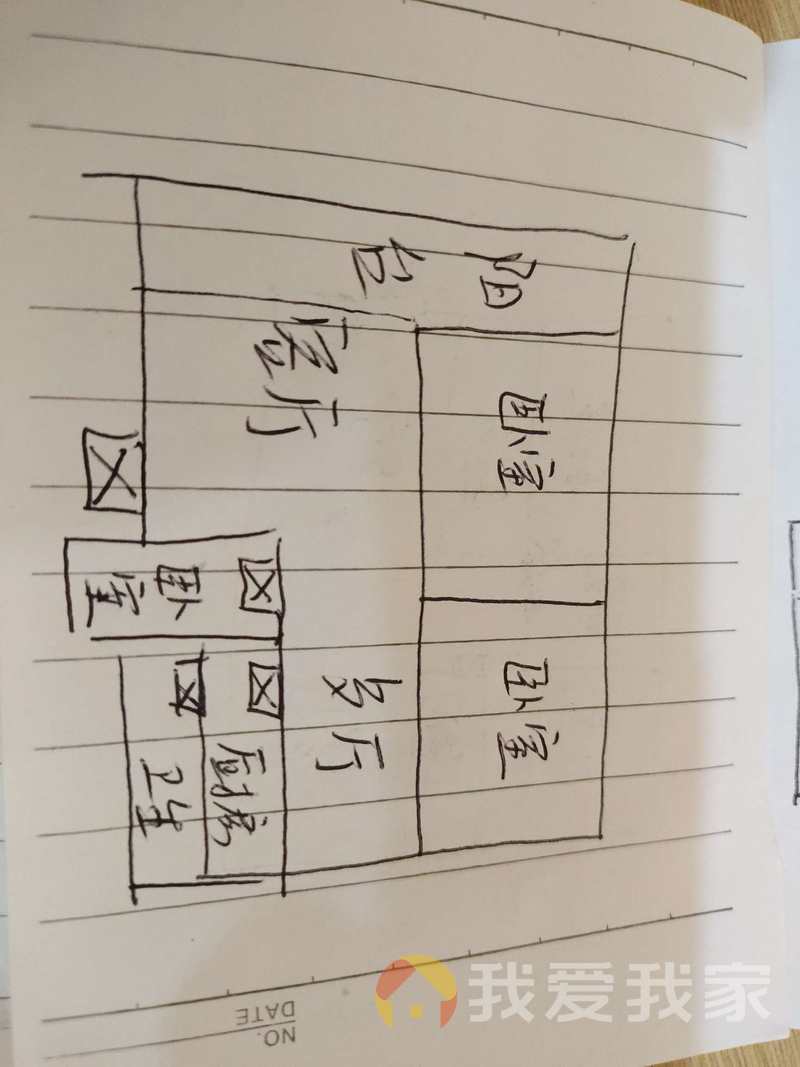 阳台
客厅
卧室
卧室
卧室
歺厅
厨房
卫生
NO.
DATE
我爱我家